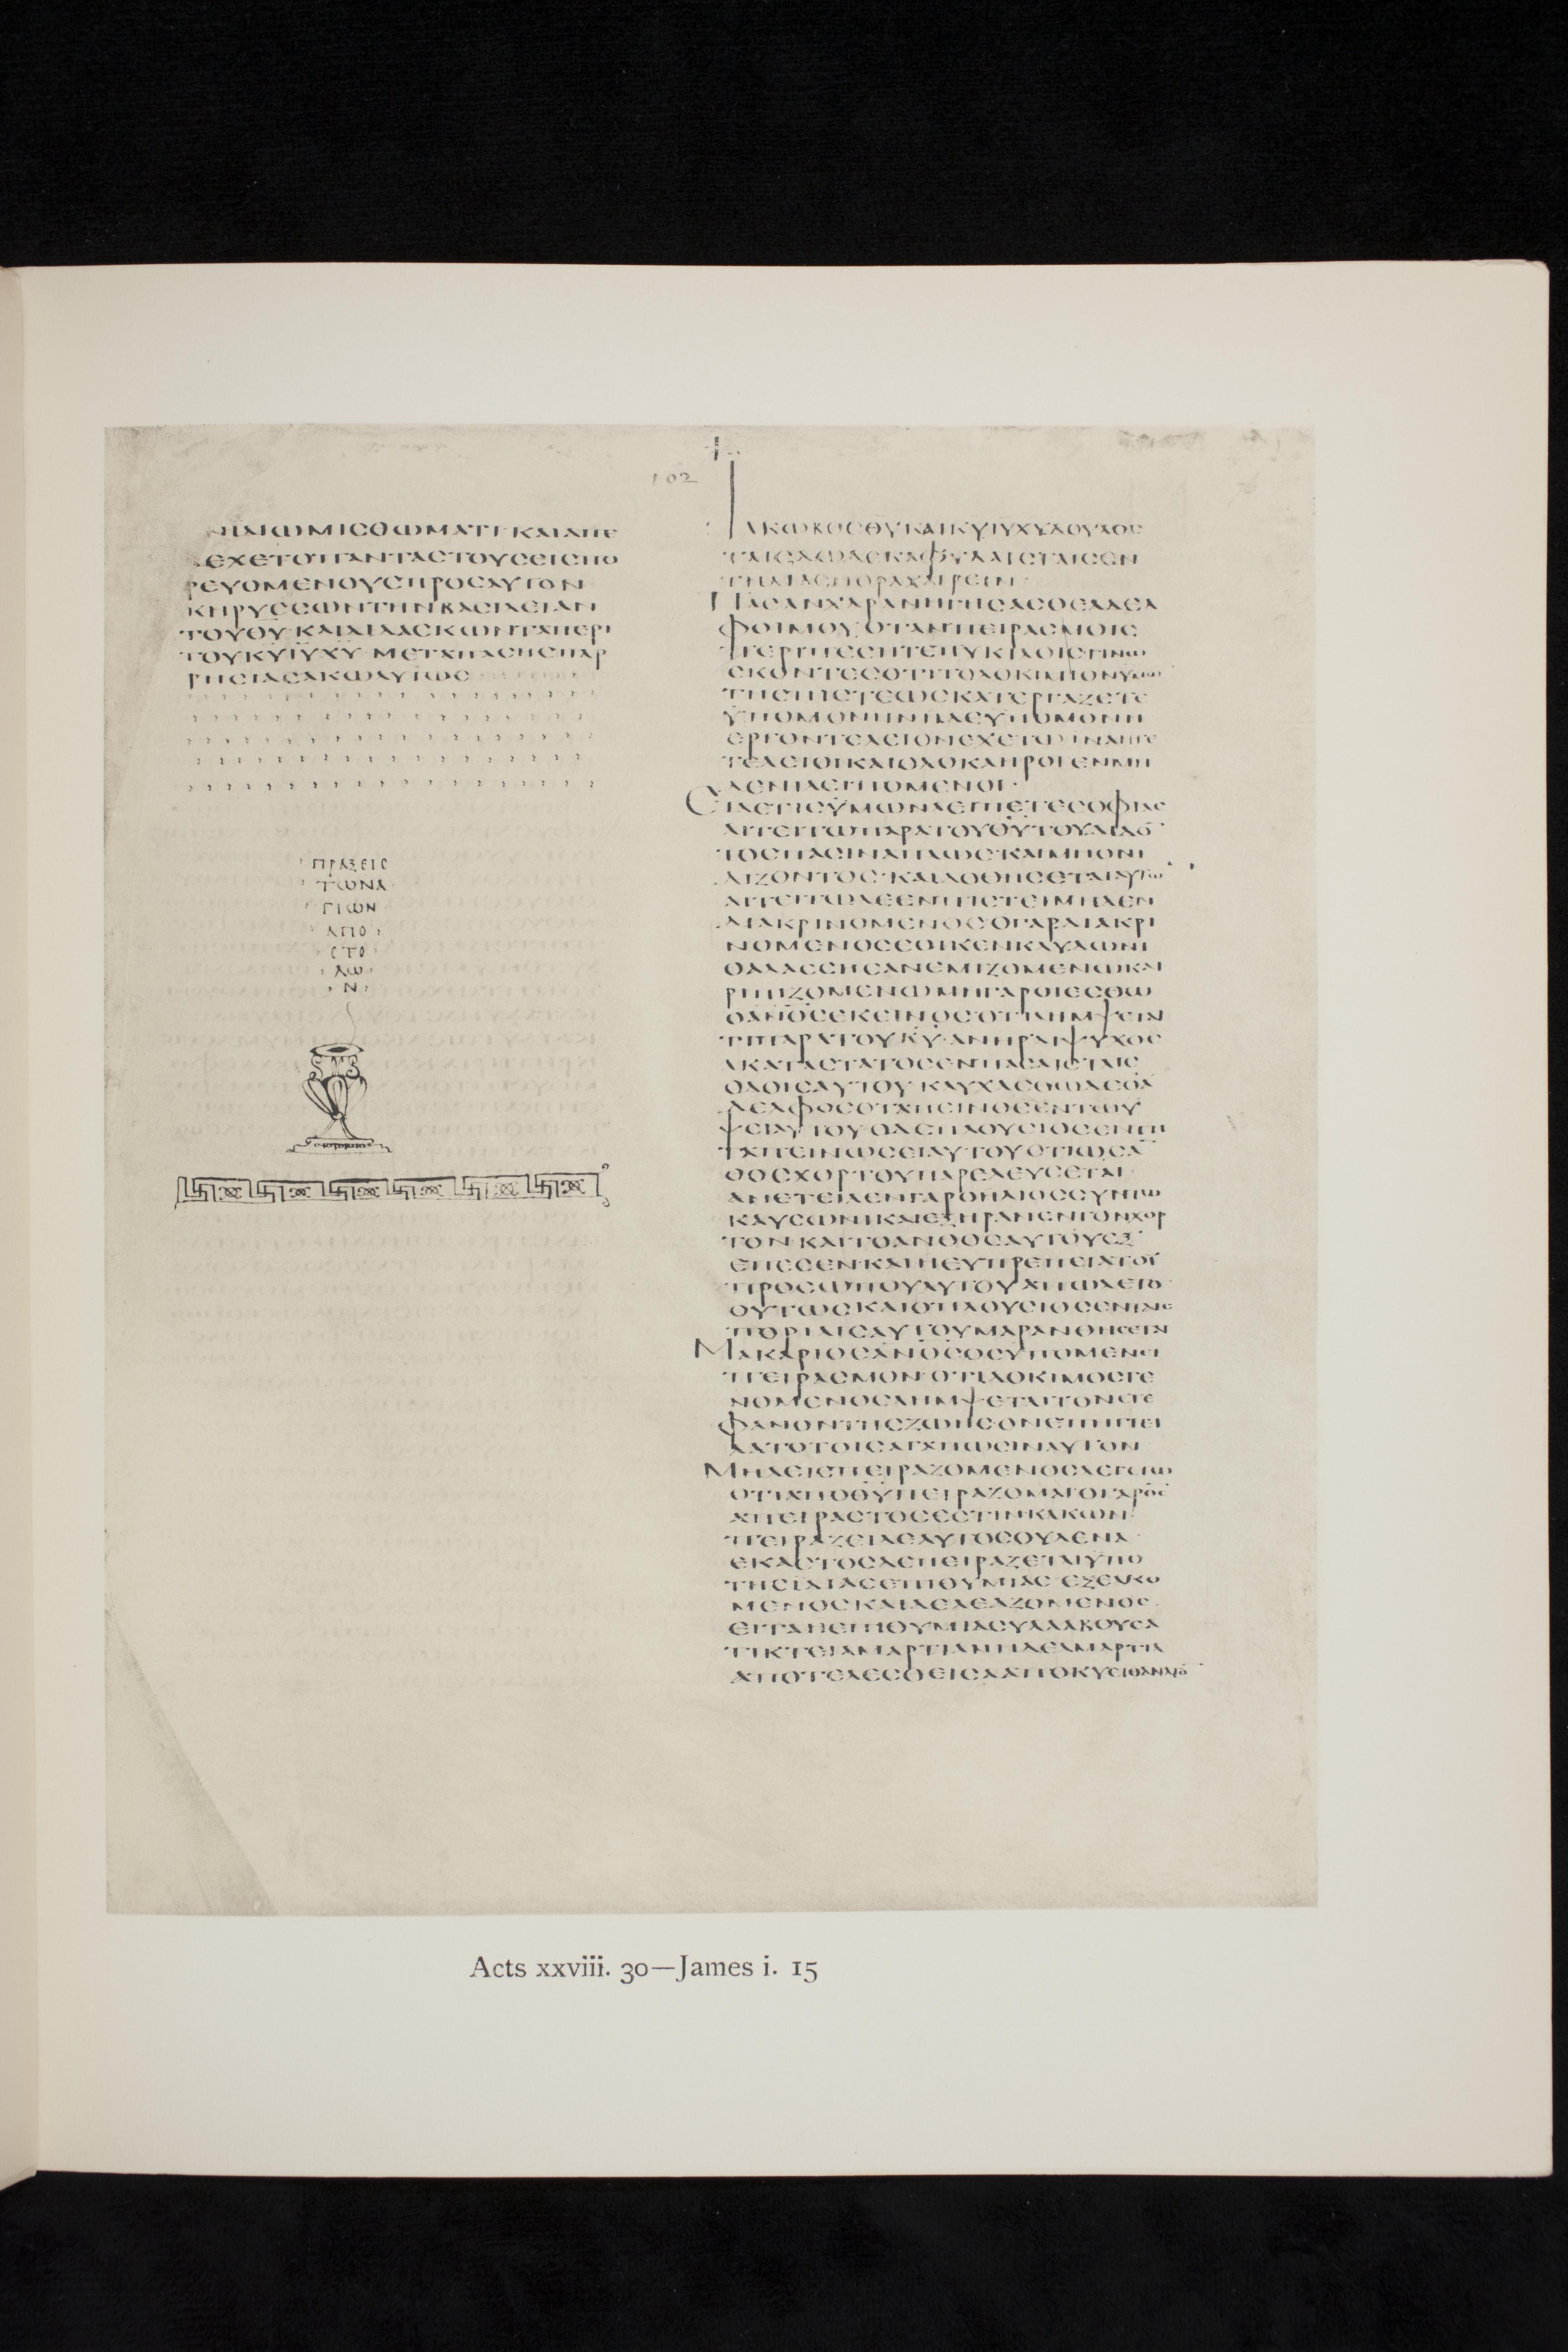 ΝΙΔΙΩΜΙϹΘΩΜΑΤΙ ΚΑΙΑΠΕ
ΔΕΧΕΤΟΠΑΝΤΑϹΤΟΥϹΕΙϹΠΟ
ΡΕΥΟΜΕΝΟΥϹΠΡΟϹΑΥΤΟΝ
ΚΗΡΥϹϹΩΝΤΗΝΒΑϹΙΛΕΙΑΝ
ΤΟΥΘΥ ΚΑΙΔΙΔΑϹΚΩΝΤΑΠΕΡΙ
ΤΟΥΚΥΙΥΧΥ ΜΕΤΑΠΑϹΗϹΠΑΡ
ΡΗϹΙΑϹΑΚΩΛΥΤΩϹ
ΠΡΑΞΕΙϹ
ΤΩΝΑ
ΓΙΩΝ
ΑΠΟ
ϹΤΟ
ΛΩ
Ν
102
ΙΑΚΩΚΟϹΘΥΚΑΙΚΥΙΥΧΥΔΟΥΛΟϹ
ΤΑΙϹΔΩΔΕΚΑΦΥΛΑΙϹΤΑΙϹΕΝ
ΤΗΔΙΑϹΠΟΡΑΧΑΙΡΕΙΝ·
ΠΑϹΑΝΧΑΡΑΝΗΓΗϹΑϹΘΕΑΔΕΛ
ΦΟΙΜΟΥ ΟΤΑΝΠΕΙΡΑϹΜΟΙϹ
ΠΕΡΙΠΕϹΗΤΕΠΟΙΚΙΛΟΙϹΓΙΝΩ
ϹΚΟΝΤΕϹΟΤΙΤΟΔΟΚΙΜΙΟΝΥΜΩ
ΤΗϹΠΙϹΤΕΩϹΚΑΤΕΡΓΑΖΕΤΕ
ΫΠΟΜΟΝΗΝΗΔΕΥΠΟΜΟΝΗ
ΕΡΓΟΝΤΕΛΕΙΟΝΕΧΕΤΩ ΙΝΑΗΤΕ
ΤΕΛΕΙΟΙΚΑΙΟΛΟΚΛΗΡΟΙ ΕΝΜΗ
ΔΕΝΙΛΕΙΠΟΜΕΝΟΙ·
ΕΙΔΕΤΙϹΫΜΩΝΛΕΙΠΕΤΕϹΟΦΙΑϹ
ΑΙΤΕΙΤΩΠΑΡΑΤΟΥΘΥΤΟΥΔΙΔΟ
ΤΟϹΠΑϹΙΝΑΠΛΩϹΚΑΙΜΗΟΝΙ
ΔΙΖΟΝΤΟϹ ΚΑΙΔΟΘΗϹΕΤΑΙΑΥΤΩ
ΑΙΤΕΙΤΩΔΕΕΝΠΙϹΤΕΙΜΗΔΕΝ
ΔΙΑΚΡΙΝΟΜΕΝΟϹΟΓΑΡΔΙΑΚΡΙ
ΝΟΜΕΝΟϹΕΟΙΚΕΝΚΛΥΔΩΝΙ
ΘΑΛΑϹϹΗϹΑΝΕΜΙΖΟΜΕΝΩΚΑΙ
ΡΙΠΙΖΟΜΕΝΩΜΗΓΑΡΟΙΕϹΘΩ
ΟΑΝΟϹΕΚΕΙΝΟϹΟΤΙΛΗΜΨΕΤΑΙ
ΤΙΠΑΡΑΤΟΥΚΥ ΑΝΗΡΔΙΨΥΧΟϹ
ΑΚΑΤΑϹΤΑΤΟϹΕΝΠΑϹΑΙϹΤΑΙϹ
ΟΔΟΙϹΑΥΤΟΥ ΚΑΥΧΑϹΘΩΔΕΟΑ
ΔΕΛΦΟϹΟΤΑΠΕΙΝΟϹΕΝΤΩΥ
ΨΕΙΑΥΤΟΥ ΟΔΕΠΛΟΥϹΙΟϹΕΝΤΗ
ΤΑΠΕΙΝΩϹΕΙΑΥΤΟΥ ΟΤΙΩϹΑ
ΘΟϹΧΟΡΤΟΥΠΑΡΕΛΕΥϹΕΤΑΙ·
ΑΝΕΤΕΙΛΕΝΓΑΡΟΗΛΙΟϹϹΥΝΤΩ
ΚΑΥϹΩΝΙΚΑΙΕΞΗΡΑΝΕΝΤΟΝΧΟΡ
ΤΟΝ ΚΑΙΤΟΑΝΘΟϹΑΥΤΟΥΕΞ
ΕΠΕϹΕΝΚΑΙΗΕΥΠΡΕΠΕΙΑΤΟΥ
ΠΡΟϹΩΠΟΥΑΥΤΟΥΑΠΩΛΕΤΟ
ΟΥΤΩϹΚΑΙΟΠΛΟΥϹΙΟϹΕΝΤΑΙϹ
ΠΟΡΙΑΙϹΑΥΤΟΥΜΑΡΑΝΘΗϹΕΤΑΙ
ΜΑΚΑΡΙΟϹΑΝΟϹΟϹΥΠΟΜΕΝΕΙ
ΠΕΙΡΑϹΜΟΝ ΟΤΙΔΟΚΙΜΟϹΓΕ
ΝΟΜΕΝΟϹΛΗΜΨΕΤΑΙΤΟΝϹΤΕ
ΦΑΝΟΝΤΗϹΖΩΗϹΟΝΕΠΗΓΓΕΙ
ΛΑΤΟΤΟΙϹΑΓΑΠΩϹΙΝΑΥΤΟΝ
ΜΗΔΕΙϹΠΕΙΡΑΖΟΜΕΝΟϹΛΕΓΕΤΩ
ΟΤΙΑΠΟΘΥΠΕΙΡΑΖΟΜΑΙΟΓΑΡΘϹ
ΑΠΕΙΡΑϹΤΟϹΕϹΤΙΝΚΑΚΩΝ·
ΠΕΙΡΑΖΕΙΔΕΑΥΤΟϹΟΥΔΕΝΑ·
ΕΚΑϹΤΟϹΔΕΠΕΙΡΑΖΕΤΑΙΫΠΟ
ΤΗϹΙΔΙΑϹΕΠΙΘΥΜΙΑϹ ΕΞΕΛΚΟ
ΜΕΝΟϹΚΑΙΔΕΛΕΑΖΟΜΕΝΟϹ·
ΕΙΤΑΗΕΠΙΘΥΜΙΑϹΥΛΛΑΒΟΥϹΑ
ΤΙΚΤΕΙΑΜΑΡΤΙΑΝΗΔΕΑΜΑΡΤΙΑ
ΑΠΟΤΕΛΕϹΘΕΙϹΑΑΠΟΚΥΕΙΘΑΝΑΤΟ
Acts xxviii. 30—James i. 15